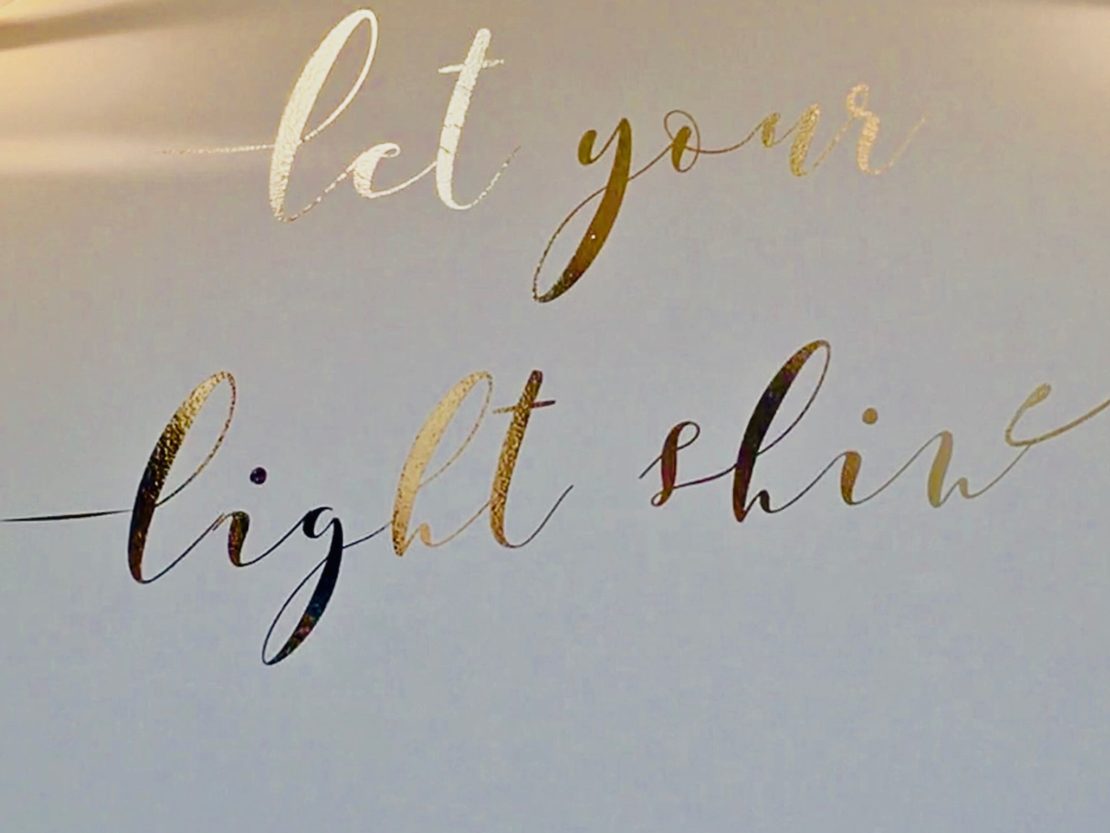 let your
light shine